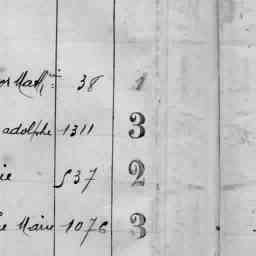 38 1
adolphe 1311 3
ie 537 2
Marie 1076 3